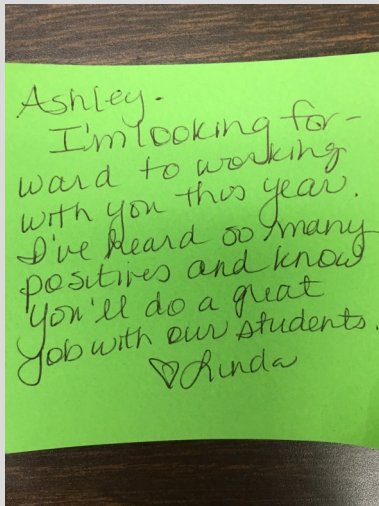 Ashley.
I'm looking for-
ward to working
with you this year.
I've heard so many
positives and know
you'll do a great
job with our students.
♡ Linda